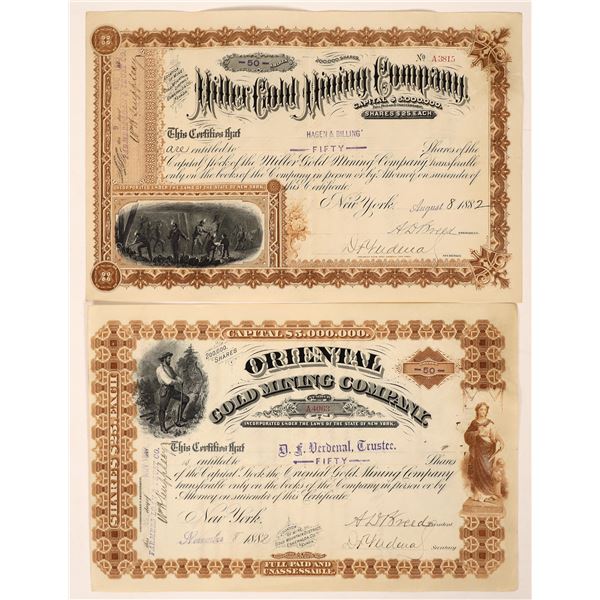 200,000 SHARES.
50
No A3815
Miller Gold Mining Company.
CAPITAL $5,000,000.
SHARES $25 EACH.
This Certifies that HAGEN & BILLING
are entitled to FIFTY Shares of the
Capital Stock of the Miller Gold Mining Company transferable
only on the books of the Company in person or by Attorney on surrender of
this Certificate.
INCORPORATED UNDER THE LAWS OF THE STATE OF NEW YORK.
New York, August 8 1882
CAPITAL $5,000,000.
200,000 SHARES
ORIENTAL
50
GOLD MINING COMPANY.
A4063
INCORPORATED UNDER THE LAWS OF THE STATE OF NEW YORK.
SHARES $25 EACH
This Certifies that D. F. Verdenal, Trustee.
is entitled to FIFTY Shares
of the Capital Stock the Oriental Gold Mining Company
transferable only on the books of the Company in person or by
Attorney on surrender of this Certificate.
New York
8 1882
President
Secretary
FULL PAID AND
UNASSESSABLE.